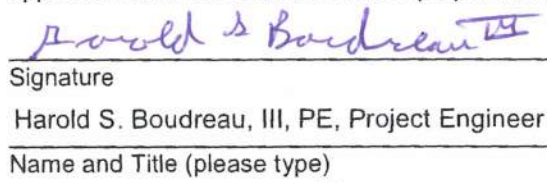 Harold S Boudreau III
Signature
Harold S. Boudreau, III, PE, Project Engineer
Name and Title (please type)